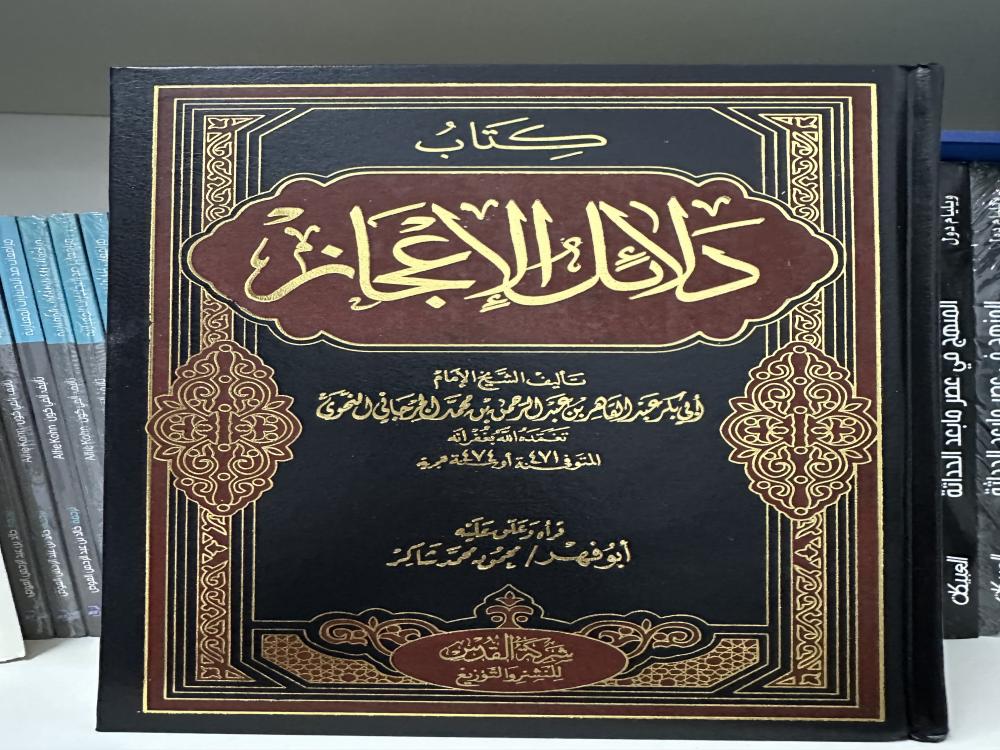 كتاب
دلائل الإعجاز
تأليف الشيخ الإمام
أبي بكر عبد القاهر بن عبد الرحمن بن محمد الجرجاني النحوي
تغمده الله بغفرانه
المتوفى سنة ٤٧١ أو سنة ٤٧٤ هجرية
قرأه وعلق عليه
أبو فهر / محمود محمد شاكر
شركة القدس
للنشر والتوزيع
ويليام دول
المنهج في عصر ما بعد الحداثة
العبيكان
Alfie Kohn
Alfie Kohn